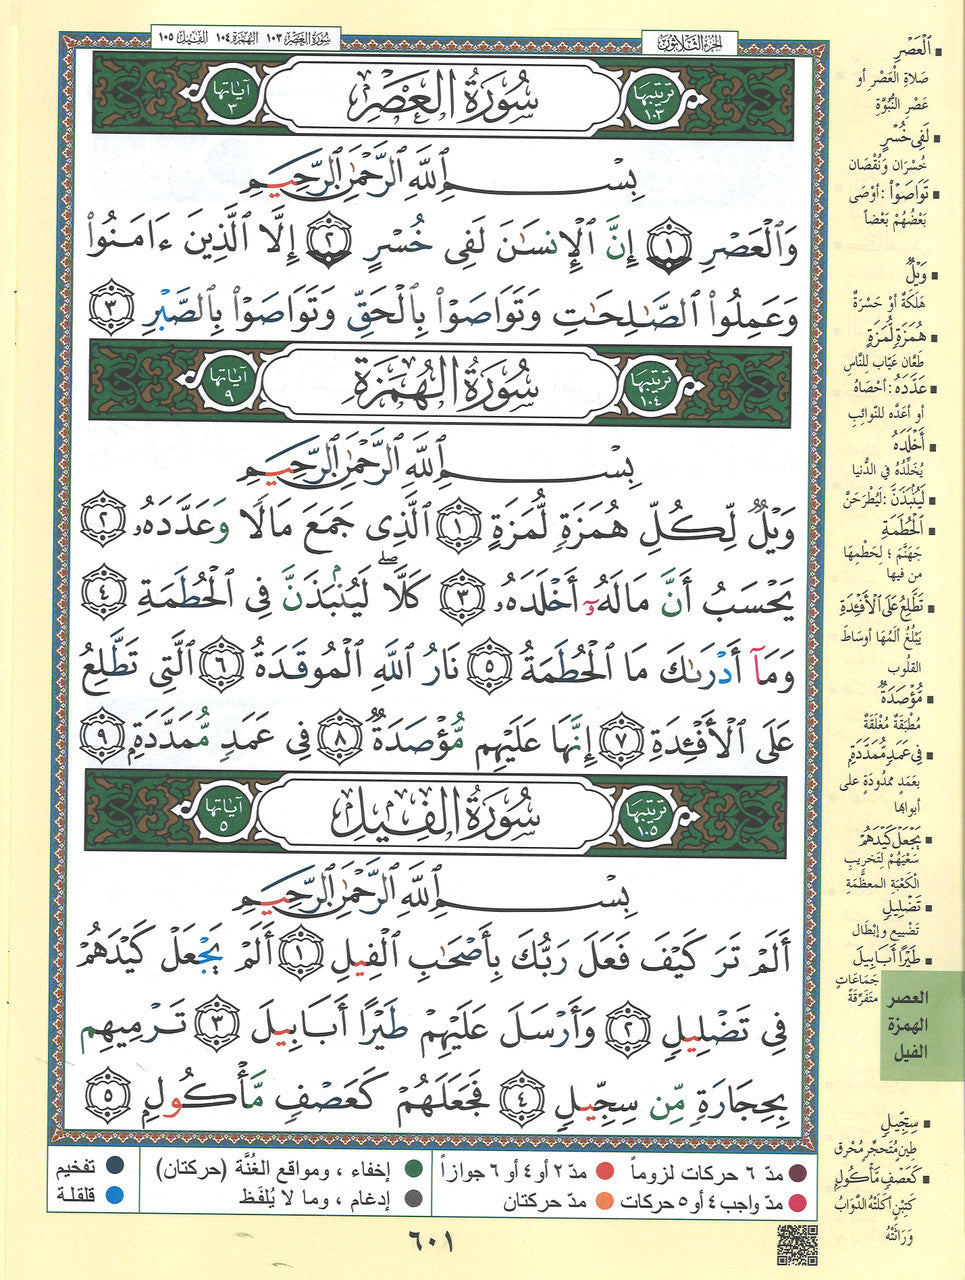 الجزء الثلاثون
سورة العصر ١٠٣ الهمزة ١٠٤ الفيل ١٠٥
ترتيبها ١٠٣
سُورَةُ العَصْرِ
آياتها ٣
بِسْمِ ٱللَّهِ ٱلرَّحْمَٰنِ ٱلرَّحِيمِ
وَٱلْعَصْرِ ١ إِنَّ ٱلْإِنسَٰنَ لَفِى خُسْرٍ ٢ إِلَّا ٱلَّذِينَ ءَامَنُوا۟
وَعَمِلُوا۟ ٱلصَّٰلِحَٰتِ وَتَوَاصَوْا۟ بِٱلْحَقِّ وَتَوَاصَوْا۟ بِٱلصَّبْرِ ٣
ترتيبها ١٠٤
سُورَةُ الهُمَزَةِ
آياتها ٩
بِسْمِ ٱللَّهِ ٱلرَّحْمَٰنِ ٱلرَّحِيمِ
وَيْلٌ لِّكُلِّ هُمَزَةٍ لُّمَزَةٍ ١ ٱلَّذِى جَمَعَ مَالًا وَعَدَّدَهُۥ ٢
يَحْسَبُ أَنَّ مَالَهُۥٓ أَخْلَدَهُۥ ٣ كَلَّا ۖ لَيُنۢبَذَنَّ فِى ٱلْحُطَمَةِ ٤
وَمَآ أَدْرَىٰكَ مَا ٱلْحُطَمَةُ ٥ نَارُ ٱللَّهِ ٱلْمُوقَدَةُ ٦ ٱلَّتِى تَطَّلِعُ
عَلَى ٱلْأَفْـِٔدَةِ ٧ إِنَّهَا عَلَيْهِم مُّؤْصَدَةٌ ٨ فِى عَمَدٍ مُّمَدَّدَةٍۭ ٩
ترتيبها ١٠٥
سُورَةُ الفِيلِ
آياتها ٥
بِسْمِ ٱللَّهِ ٱلرَّحْمَٰنِ ٱلرَّحِيمِ
أَلَمْ تَرَ كَيْفَ فَعَلَ رَبُّكَ بِأَصْحَٰبِ ٱلْفِيلِ ١ أَلَمْ يَجْعَلْ كَيْدَهُمْ
فِى تَضْلِيلٍ ٢ وَأَرْسَلَ عَلَيْهِمْ طَيْرًا أَبَابِيلَ ٣ تَرْمِيهِم
بِحِجَارَةٍ مِّن سِجِّيلٍ ٤ فَجَعَلَهُمْ كَعَصْفٍ مَّأْكُولٍۭ ٥
▪ ٱلْعَصْرِ
صَلاةِ الْعَصْرِ أو
عَصْرِ النُّبُوَّةِ
▪ لَفِى خُسْرٍ
خُسْرَان وَنُقْصَان
▪ تَوَاصَوْا۟ : أوْصَى
بَعْضُهُمْ بَعْضاً
▪ وَيْلٌ
هَلَكَةٌ أوْ حَسْرَةٌ
▪ هُمَزَةٍ لُّمَزَةٍ
طَعَّان عَيَّاب للنَّاسِ
▪ عَدَّدَهُ : أحْصَاهُ
أو أعَدَّه للنّوائِبِ
▪ أَخْلَدَهُ
يُخَلِّدُهُ في الدُّنيا
▪ لَيُنۢبَذَنَّ : لَيُطْرَحَنَّ
▪ ٱلْحُطَمَةِ
جَهَنَّمَ ؛ لِحَطْمِهَا
من فيها
▪ تَطَّلِعُ عَلَى ٱلْأَفْـِٔدَةِ
يَبْلُغُ ألَمُهَا أوسَاطَ
القُلُوب
▪ مُّؤْصَدَةٌ
مُطْبَقَةٌ مُغْلَقَةٌ
▪ فِى عَمَدٍ مُّمَدَّدَةٍ
بعَمَدٍ ممْدُودَةٍ على
أبوابها
▪ يَجْعَلْ كَيْدَهُمْ
سَعْيَهُمْ لِتَخْرِيبِ
الْكَعْبَةِ المعظَّمَةِ
▪ تَضْلِيلٍ
تَضْييعٍ وإبْطَال
▪ طَيْرًا أَبَابِيلَ
جَمَاعَاتٍ
متَفَرِّقَةً
العصر
الهمزة
الفيل
▪ سِجِّيلٍ
طِينٍ مُتَحَجِّرٍ مُحْرقٍ
▪ كَعَصْفٍ مَّأْكُولٍ
كَتِبْنٍ أكَلَتْهُ الدَّوَابُّ
وَرَاثَتْهُ
مدّ ٦ حركات لزوماً
مدّ ٢ أو ٤ أو ٦ جوازاً
إخفاء ، ومواقع الغُنَّة (حركتان)
تفخيم
مدّ واجب ٤ أو ٥ حركات
مدّ حركتان
إدغام ، وما لا يُلفَظ
قلقلة
٦٠١